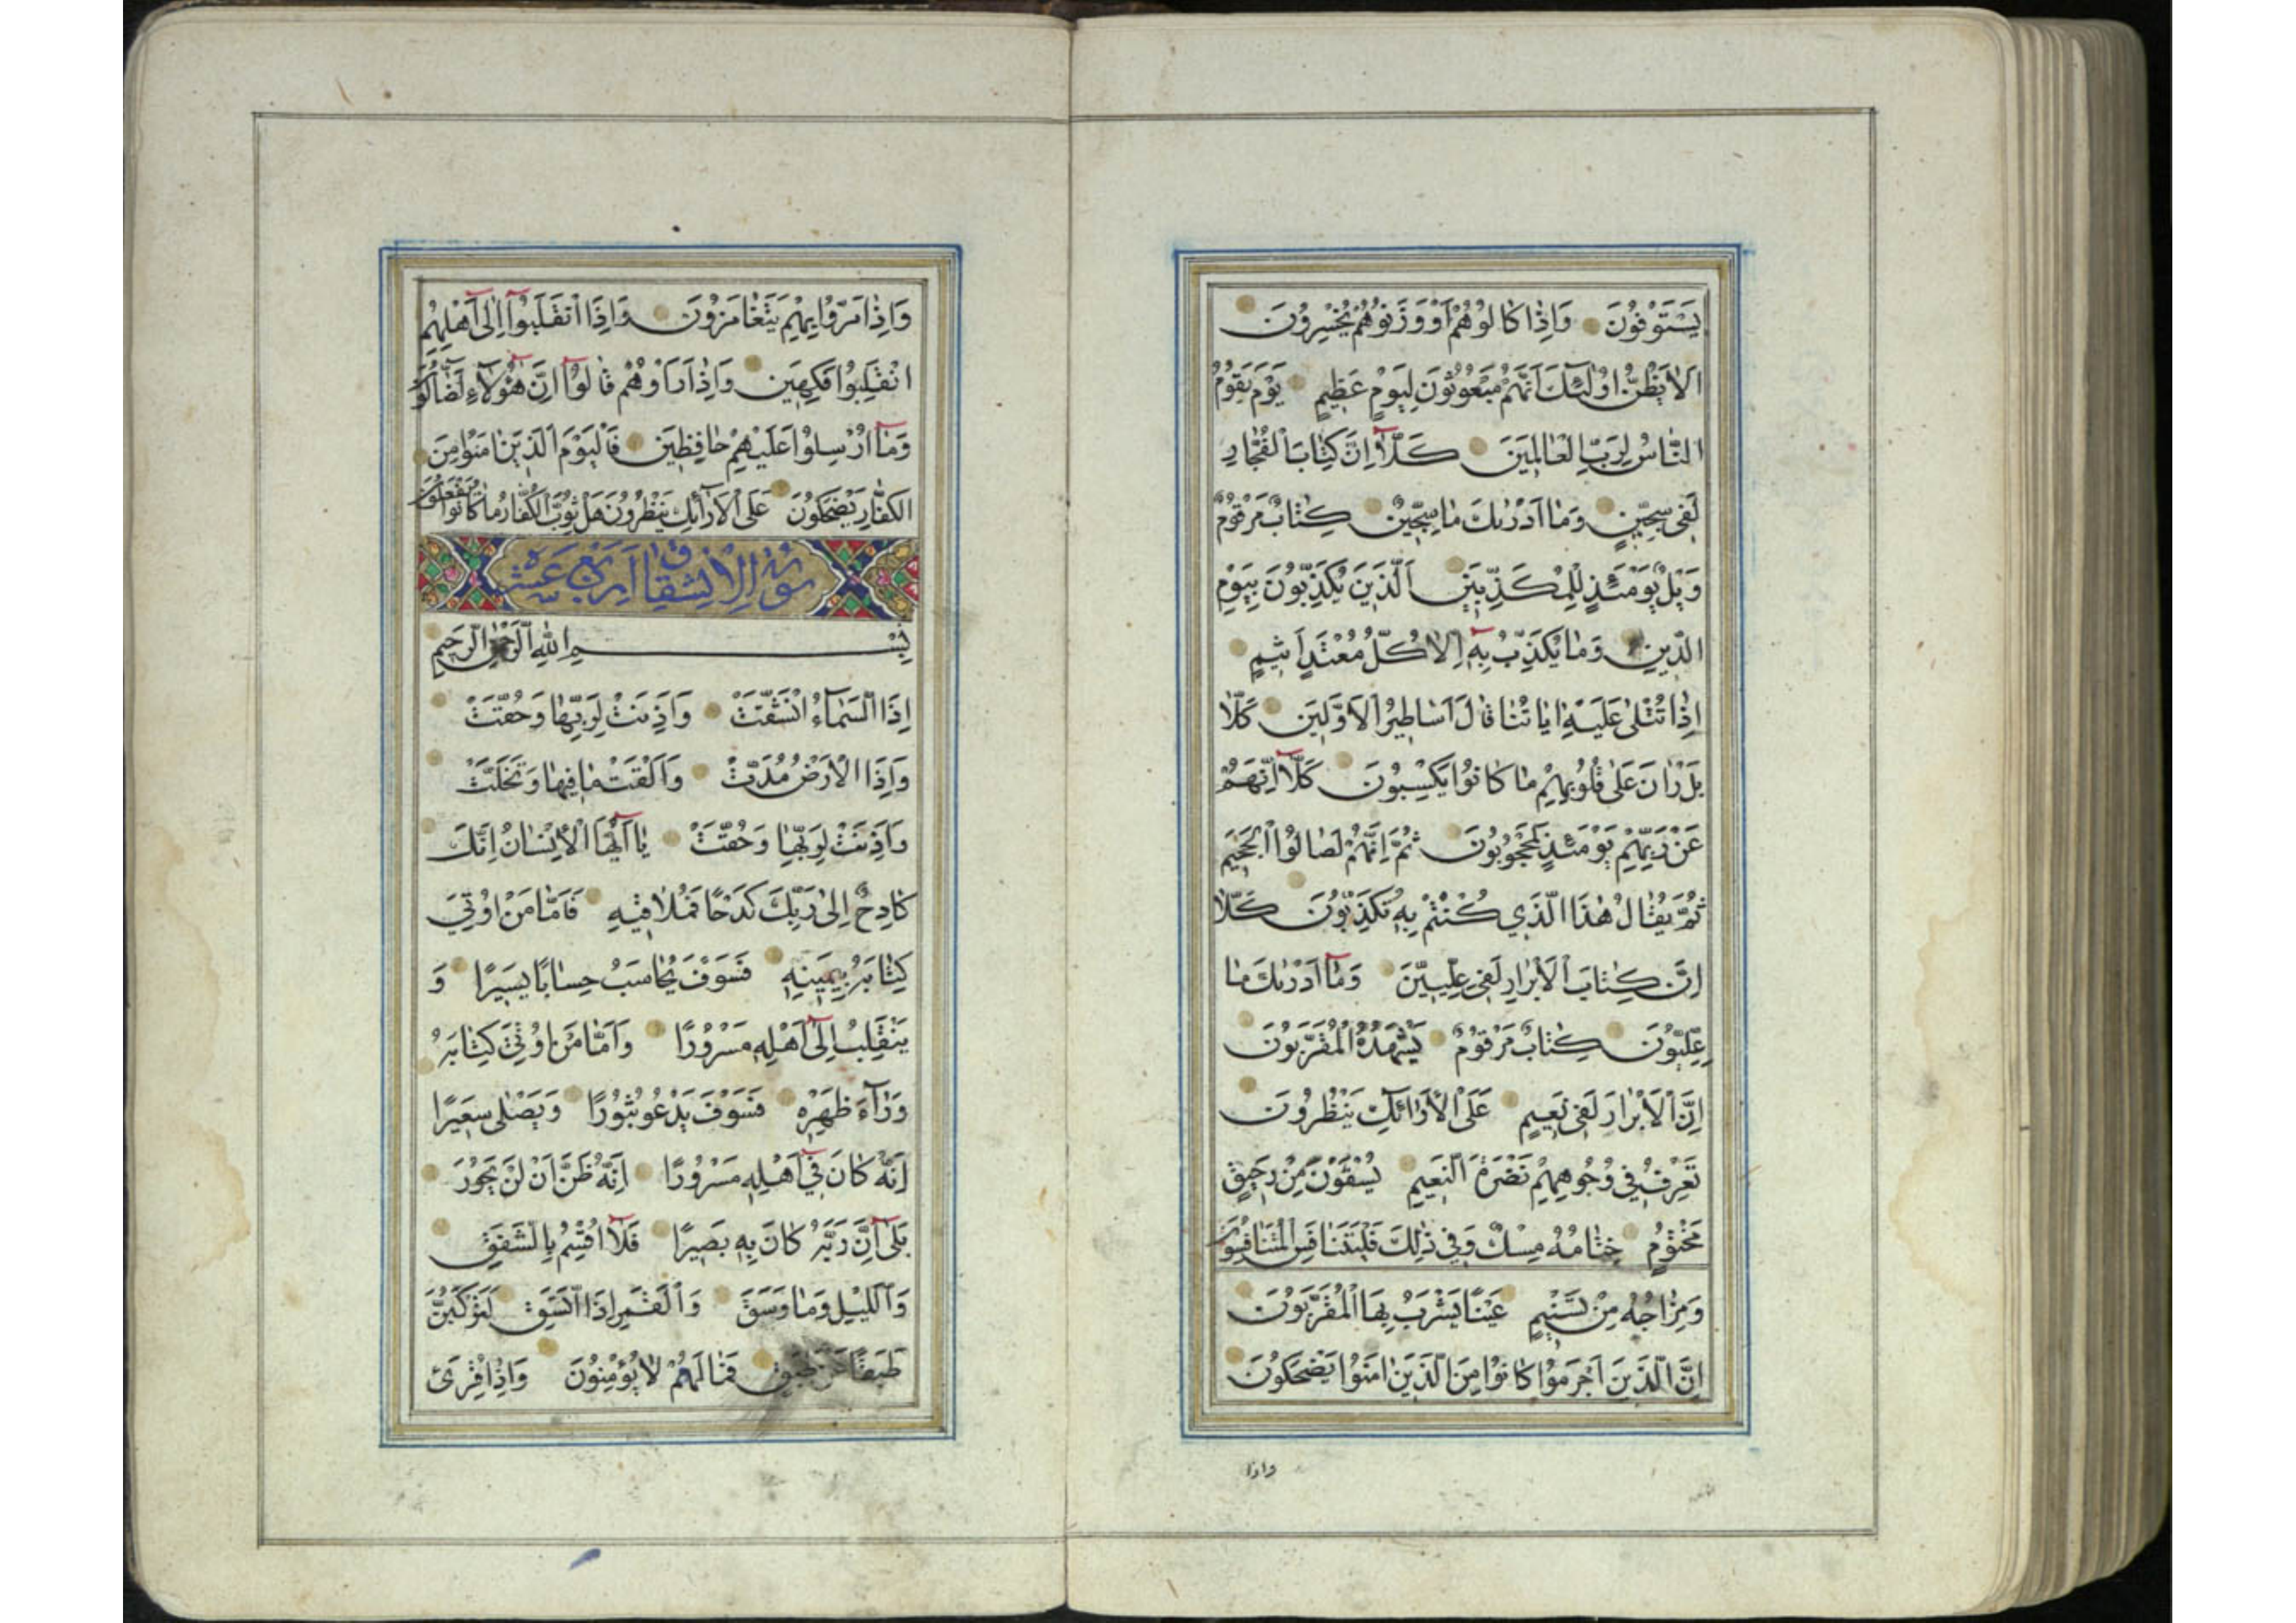 يَسْتَوْفُونَ وَاِذٰا كٰالُوهُمْ اَوْ وَزَنُوهُمْ يُخْسِرُونَ
اَلٰا يَظُنُّ اُولٰئِكَ اَنَّهُمْ مَبْعُوثُونَ لِيَوْمٍ عَظِيمٍ يَوْمَ يَقُومُ
النّٰاسُ لِرَبِّ الْعٰالَمِينَ كَلّٰا اِنَّ كِتٰابَ الْفُجّٰارِ
لَفِى سِجِّينٍ وَمٰا اَدْرٰيكَ مٰا سِجِّينٌ كِتٰابٌ مَرْقُومٌ
وَيْلٌ يَوْمَئِذٍ لِلْمُكَذِّبِينَ اَلَّذِينَ يُكَذِّبُونَ بِيَوْمِ
الدِّينِ وَمٰا يُكَذِّبُ بِهِ اِلّٰا كُلُّ مُعْتَدٍ اَثِيمٍ
اِذٰا تُتْلىٰ عَلَيْهِ اٰيٰاتُنٰا قٰالَ اَسٰاطِيرُ الْاَوَّلِينَ كَلّٰا
بَلْ رٰانَ عَلىٰ قُلُوبِهِمْ مٰا كٰانُوا يَكْسِبُونَ كَلّٰا اِنَّهُمْ
عَنْ رَبِّهِمْ يَوْمَئِذٍ لَمَحْجُوبُونَ ثُمَّ اِنَّهُمْ لَصٰالُوا الْجَحِيمِ
ثُمَّ يُقٰالُ هٰذَا الَّذِي كُنْتُمْ بِهِ تُكَذِّبُونَ كَلّٰا
اِنَّ كِتٰابَ الْاَبْرٰارِ لَفِى عِلِّيِّينَ وَمٰا اَدْرٰيكَ مٰا
عِلِّيُّونَ كِتٰابٌ مَرْقُومٌ يَشْهَدُهُ الْمُقَرَّبُونَ
اِنَّ الْاَبْرٰارَ لَفِى نَعِيمٍ عَلَى الْاَرٰائِكِ يَنْظُرُونَ
تَعْرِفُ فِي وُجُوهِهِمْ نَضْرَةَ النَّعِيمِ يُسْقَوْنَ مِنْ رَحِيقٍ
مَخْتُومٍ خِتٰامُهُ مِسْكٌ وَفِي ذٰلِكَ فَلْيَتَنٰافَسِ الْمُتَنٰافِسُونَ
وَمِزٰاجُهُ مِنْ تَسْنِيمٍ عَيْنًا يَشْرَبُ بِهَا الْمُقَرَّبُونَ
اِنَّ الَّذِينَ اَجْرَمُوا كٰانُوا مِنَ الَّذِينَ اٰمَنُوا يَضْحَكُونَ
واذا
وَاِذٰا مَرُّوا بِهِمْ يَتَغٰامَزُونَ وَاِذَا انْقَلَبُوا اِلىٰ اَهْلِهِمُ
انْقَلَبُوا فَكِهِينَ وَاِذٰا رَاَوْهُمْ قٰالُوا اِنَّ هٰؤُلٰاءِ لَضٰالُّونَ
وَمٰا اُرْسِلُوا عَلَيْهِمْ حٰافِظِينَ فَالْيَوْمَ الَّذِينَ اٰمَنُوا مِنَ
الْكُفّٰارِ يَضْحَكُونَ عَلَى الْاَرٰائِكِ يَنْظُرُونَ هَلْ ثُوِّبَ الْكُفّٰارُ مٰا كٰانُوا يَفْعَلُونَ
سُورَةُ الْاِنْشِقٰاق اَرْبَع عَشَرَ
بِسْمِ اللّٰهِ الرَّحْمٰنِ الرَّحِيمِ
اِذَا السَّمٰاءُ انْشَقَّتْ وَاَذِنَتْ لِرَبِّهٰا وَحُقَّتْ
وَاِذَا الْاَرْضُ مُدَّتْ وَاَلْقَتْ مٰا فِيهٰا وَتَخَلَّتْ
وَاَذِنَتْ لِرَبِّهٰا وَحُقَّتْ يٰا اَيُّهَا الْاِنْسٰانُ اِنَّكَ
كٰادِحٌ اِلىٰ رَبِّكَ كَدْحًا فَمُلٰاقِيهِ فَاَمّٰا مَنْ اُوتِيَ
كِتٰابَهُ بِيَمِينِهِ فَسَوْفَ يُحٰاسَبُ حِسٰابًا يَسِيرًا وَ
يَنْقَلِبُ اِلىٰ اَهْلِهِ مَسْرُورًا وَاَمّٰا مَنْ اُوتِيَ كِتٰابَهُ
وَرٰاءَ ظَهْرِهِ فَسَوْفَ يَدْعُو ثُبُورًا وَيَصْلىٰ سَعِيرًا
اِنَّهُ كٰانَ فِي اَهْلِهِ مَسْرُورًا اِنَّهُ ظَنَّ اَنْ لَنْ يَحُورَ
بَلىٰ اِنَّ رَبَّهُ كٰانَ بِهِ بَصِيرًا فَلٰا اُقْسِمُ بِالشَّفَقِ
وَاللَّيْلِ وَمٰا وَسَقَ وَالْقَمَرِ اِذَا اتَّسَقَ لَتَرْكَبُنَّ
طَبَقًا عَنْ طَبَقٍ فَمٰا لَهُمْ لٰا يُؤْمِنُونَ وَاِذٰا قُرِئَ